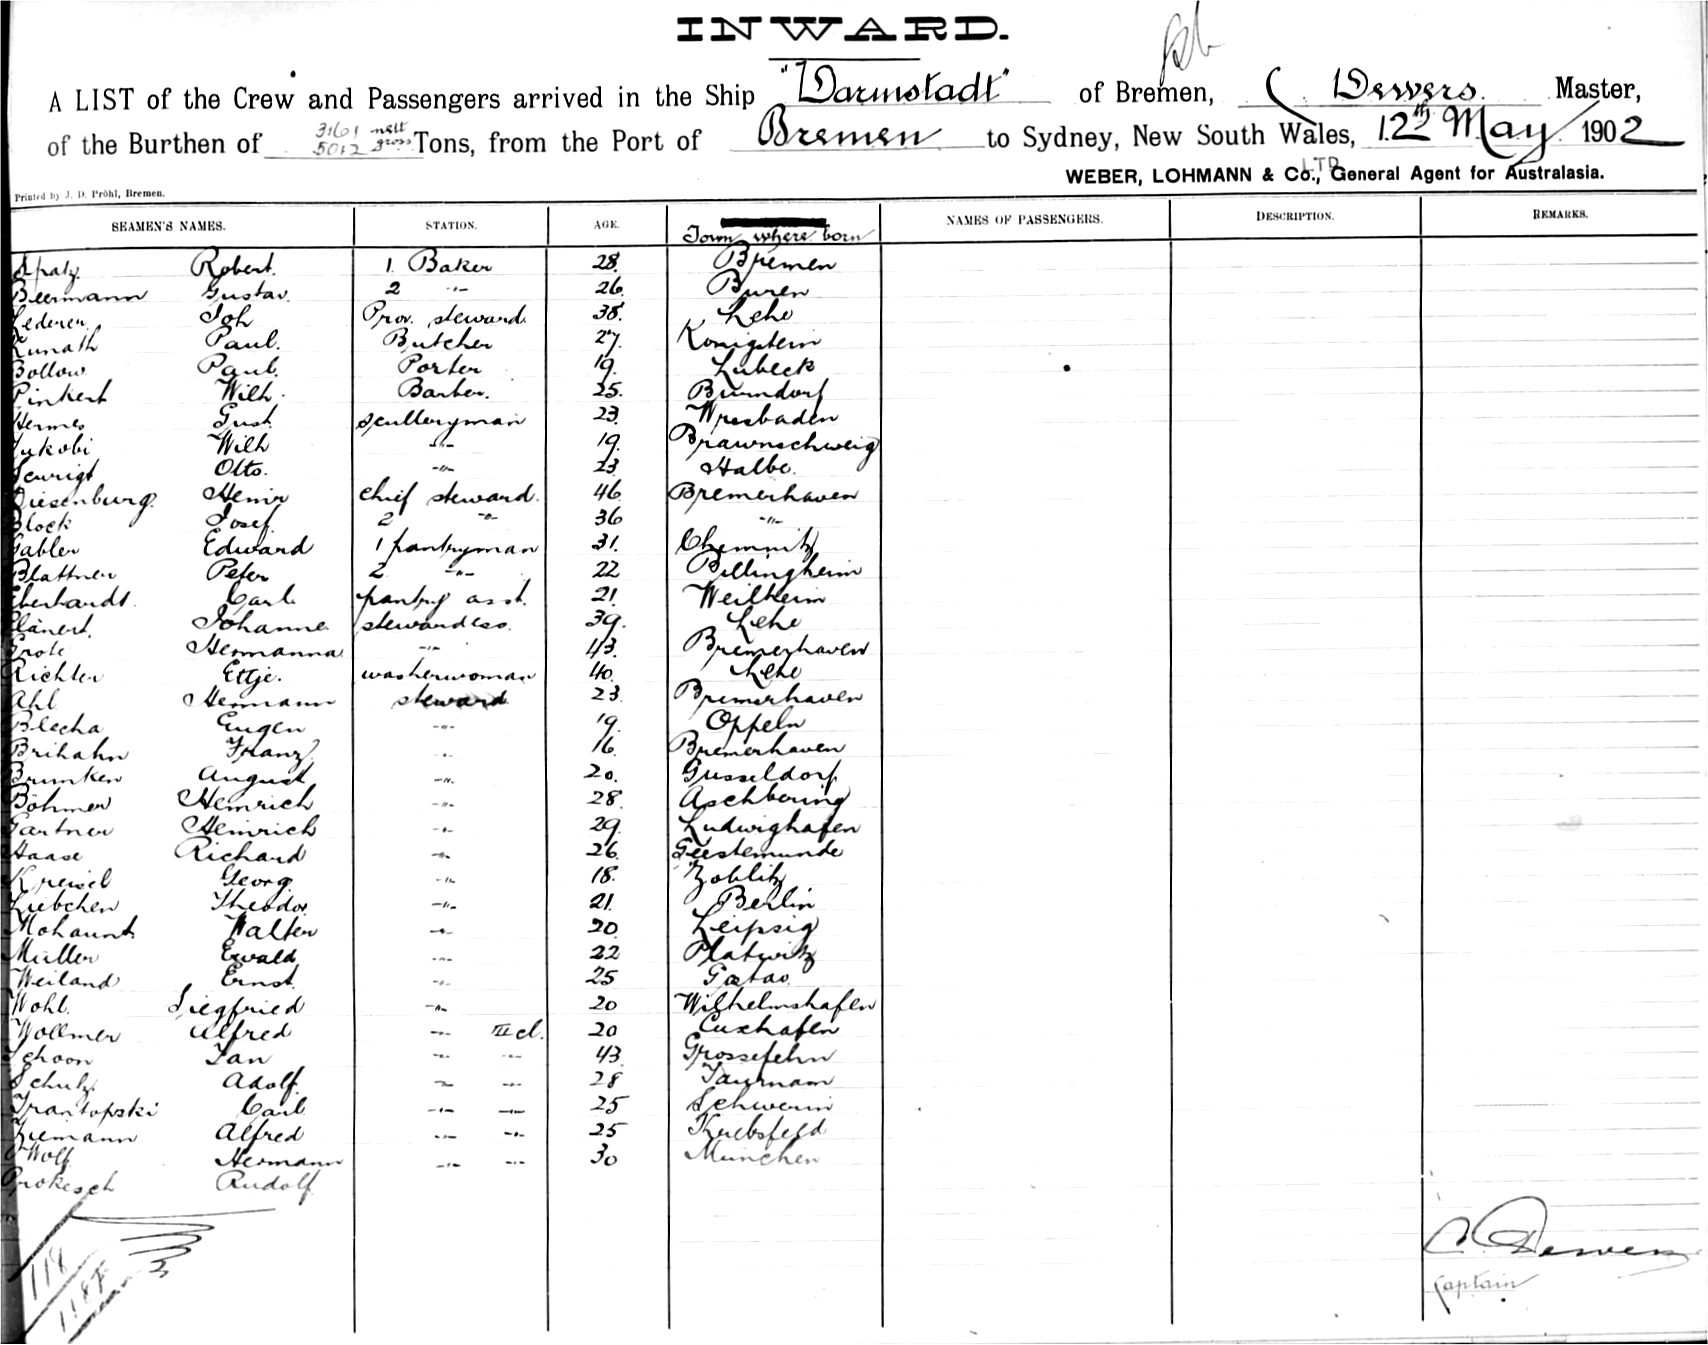 INWARD.
A LIST of the Crew and Passengers arrived in the Ship "Darmstadt" of Bremen, C Dewers. Master,
of the Burthen of 3161 nett 5012 gross Tons, from the Port of Bremen to Sydney, New South Wales, 12th May 1902
WEBER, LOHMANN & Co., LTD General Agent for Australasia.
Printed by J. D. Pröhl, Bremen.
SEAMEN'S NAMES. STATION. AGE. Town where born NAMES OF PASSENGERS. DESCRIPTION. REMARKS.
Spatz. Robert. 1. Baker 28. Bremen
Beermann Gustav. 2 -"- 26. Buren
Lederer Joh 38. Prov. steward. Lehe
Kunath Paul. Butcher 27. Konigstein
Bollow Paul. Porter 19. Lubeck
Pinkert Wilh. Barber. 25. 
Hermes Gust. scullerymann 23. Wiesbaden
Jakobi Wilh -"- 19. Braunschweig
Otto. -"- 23 Halbe.
Diesenburg. Heinr chief steward. 46. Bremerhaven
Block Josef. 2 -"- 36 -"-
Gabler Edward 1 pantryman 31. Chemnitz
Blattner Peter 2. -"- 22 Billingheim
Eberhardt. Carl. pantry asst. 21. Weilheim
Johanne stewardess. 39. Lehe
Grote Hermanna -"- 43. Bremerhaven
Richter Ettje. washerwoman 40. Lehe
Ahl Hermann steward 23. Bremerhaven
Blecha Eugen -"- 19. Oppeln
Brihahn Franz -"- 16. Bremerhaven
Brunken August -"- 20. Dusseldorf
Böhmer Heinrich -"- 28.
Gartner Heinrich -"- 29. Ludwighafen
Haase Richard -"- 26. Geestemunde
Kreisel Georg -"- 18. Zoblitz
Liebchen Theodor. -"- 21. Berlin
Mohaunt. Walter -"- 20. Leipzig
Müller Ewald -"- 22 Platwitz
Weiland Ernst. -"- 25
Wohl. Siegfried -"- 20 Wilhelmshafen
Vollmer Alfred -"- III cl. 20 Cuxhafen
Schoon Jan -"- -"- 43. Grossefehn
Schulz. Adolf. -"- -"- 28
Carl -"- -"- 25 Schwerin
Ziemann Alfred -"- -"- 25 Krebsfeld
Wolf Hermann -"- -"- 30 München
Prokesch Rudolf.
118
C. Dewers
Captain